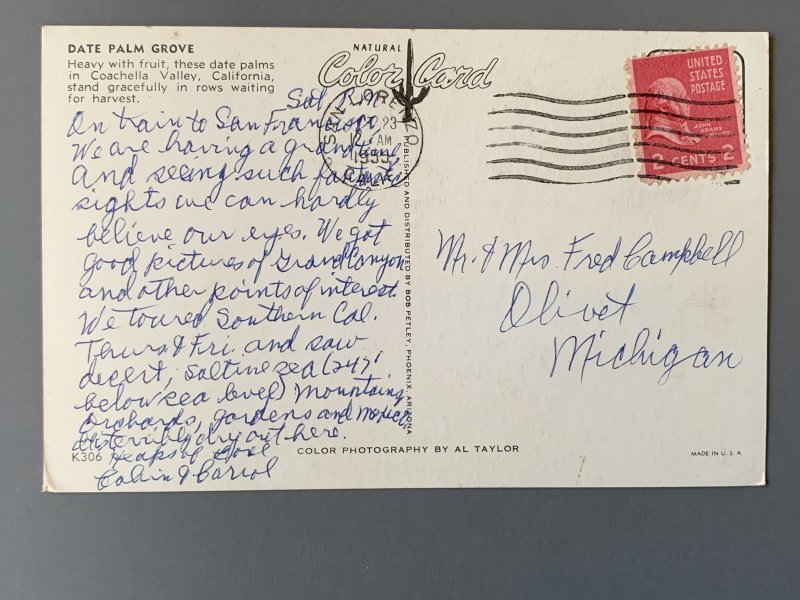 DATE PALM GROVE
Heavy with fruit, these date palms
in Coachella Valley, California,
stand gracefully in rows waiting
for harvest.
Sat. P.M.
On train to San Francisco,
We are having a grand time
and seeing such
sights we can hardly
believe our eyes. We got
good pictures of Grand Canyon
and other points of interest.
We toured Southern Cal.
Thurs & Fri. and saw
desert, (245'
below sea level) mountains,
orchards, gardens and
terribly dry out here.
Heaps of Love
K306
NATURAL
Color Card
SAN LORENZO
23
AM
1955
CALIF
PUBLISHED AND DISTRIBUTED BY BOB PETLEY, PHOENIX, ARIZONA
UNITED
STATES
POSTAGE
JOHN
ADAMS
2 CENTS 2
Mr. & Mrs. Fred Campbell
Olivet
Michigan
COLOR PHOTOGRAPHY BY AL TAYLOR
MADE IN U. S. A